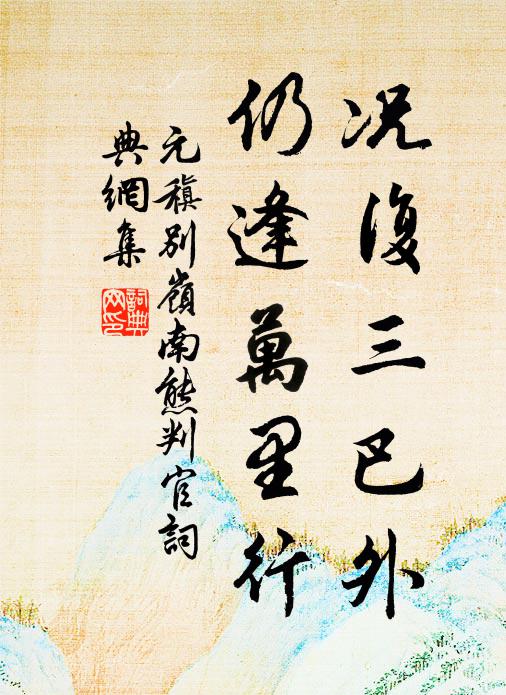 况復三巴外
仍逢萬里行
元稹别嶺南熊判官詞
典網集
詞典
网印